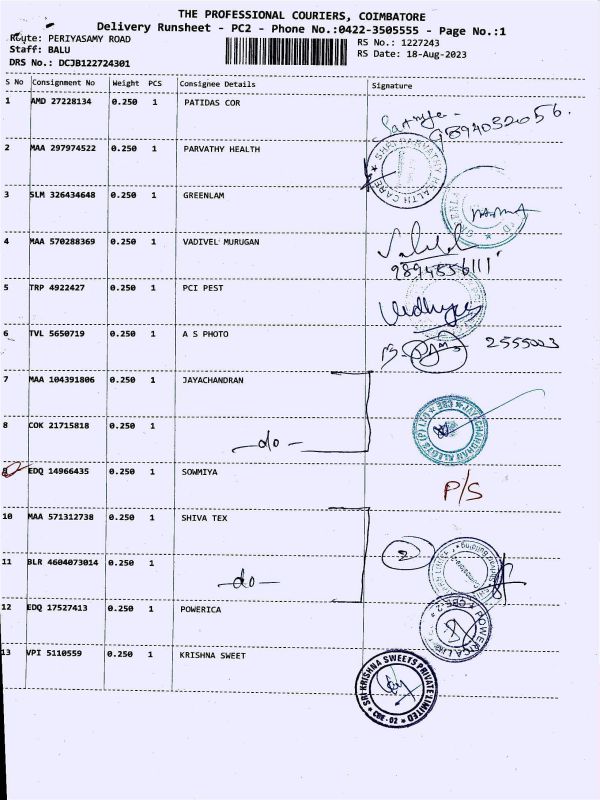 THE PROFESSIONAL COURIERS, COIMBATORE
Delivery Runsheet - PC2 - Phone No.:0422-3505555 - Page No.:1
Route: PERIYASAMY ROAD
RS No.: 1227243
Staff: BALU
RS Date: 18-Aug-2023
DRS No.: DCJB122724301
S No Consignment No Weight PCS Consignee Details Signature
1 AMD 27228134 0.250 1 PATIDAS COR
9894032056.
2 MAA 297974522 0.250 1 PARVATHY HEALTH
3 SLM 326434648 0.250 1 GREENLAM
4 MAA 570288369 0.250 1 VADIVEL MURUGAN
9894556111
5 TRP 4922427 0.250 1 PCI PEST
6 TVL 5650719 0.250 1 A S PHOTO
2555003
7 MAA 104391806 0.250 1 JAYACHANDRAN
8 COK 21715818 0.250 1 -do-
9 EDQ 14966435 0.250 1 SOWMIYA P/S
10 MAA 571312738 0.250 1 SHIVA TEX
2
11 BLR 4604073014 0.250 1 -do-
12 EDQ 17527413 0.250 1 POWERICA
13 VPI 5110559 0.250 1 KRISHNA SWEET
SRI KRISHNA SWEETS PRIVATE LIMITED
CBE - 02